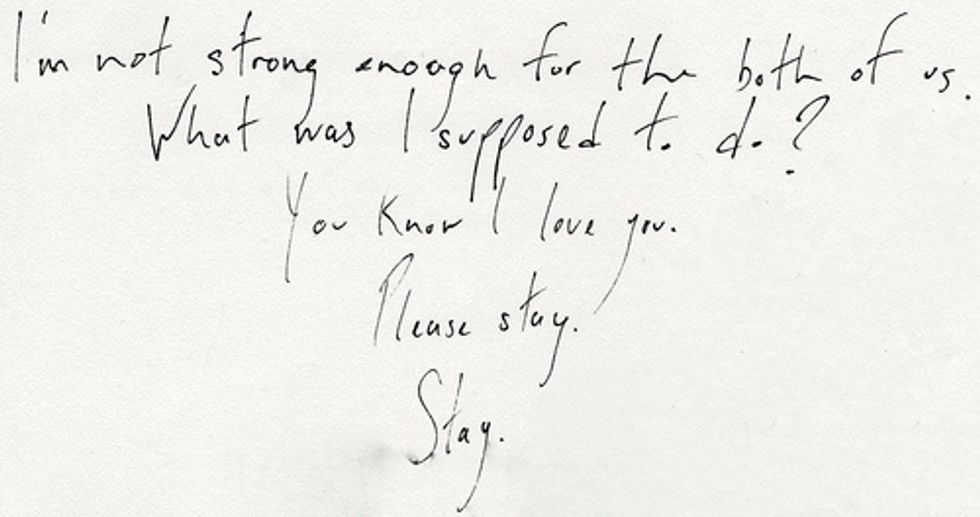 I'm not strong enough for the both of us.
What was I supposed to do?
You know I love you.
Please stay.
Stay.